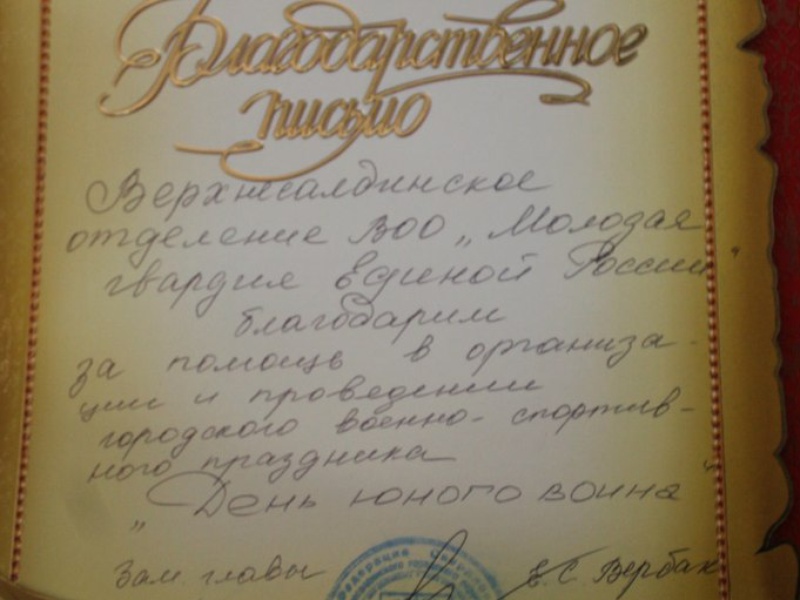 Благодарственное
письмо
Верхнесалдинское
отделение ВОО „Молодая
гвардия Единой России"
благодарим
за помощь в организа-
ции и проведении
городского военно-спортив-
ного праздника
„День юного воина"
Зам. главы Е.С. Вербах
Федерация